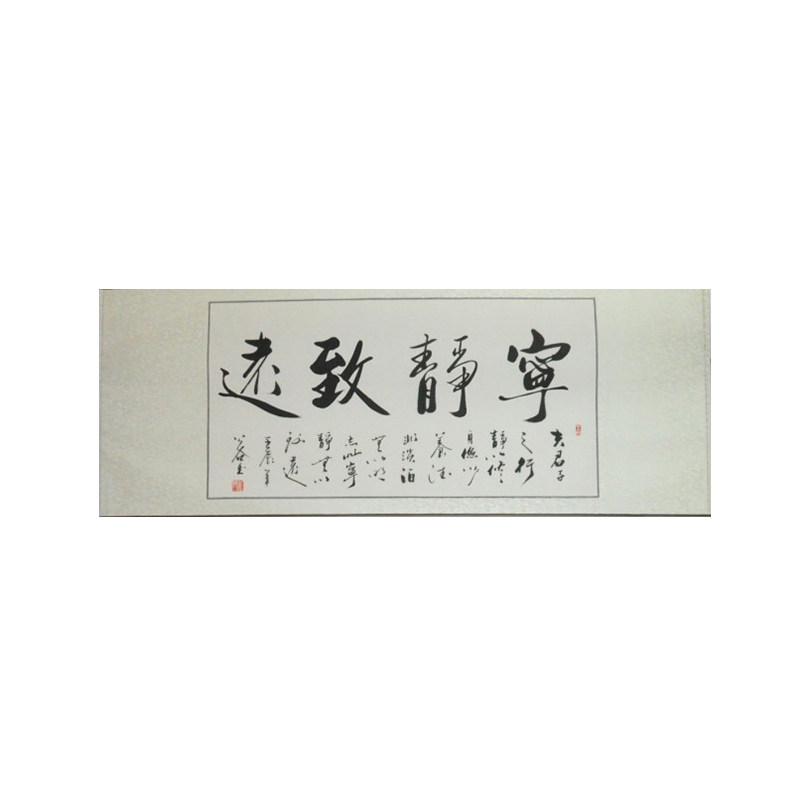 寧靜致遠
夫君子
之行
靜以修
身儉以
養德
非淡泊
無以明
志非寧
靜無以
致遠
壬辰年